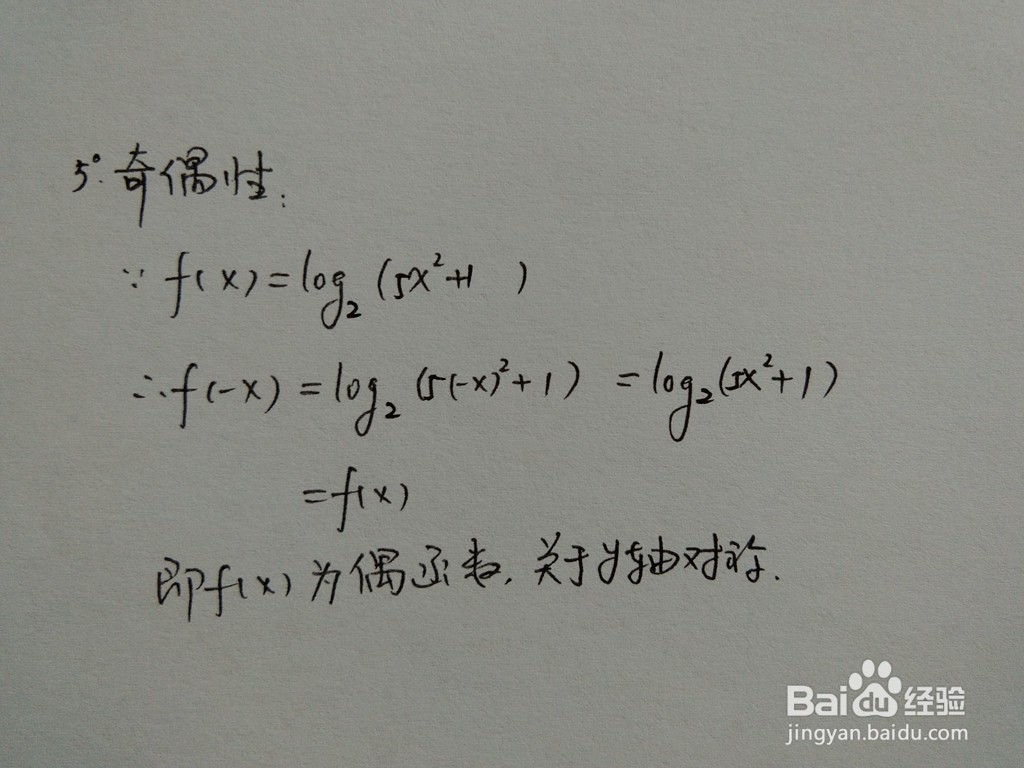 5°.奇偶性:
∵ f(x)=log₂(5x²+1 )
∴f(-x) = log₂(5(-x)²+1) =log₂(5x²+1)
=f(x)
即f(x)为偶函数,关于y轴对称.
Bai du 经验
jingyan.baidu.com